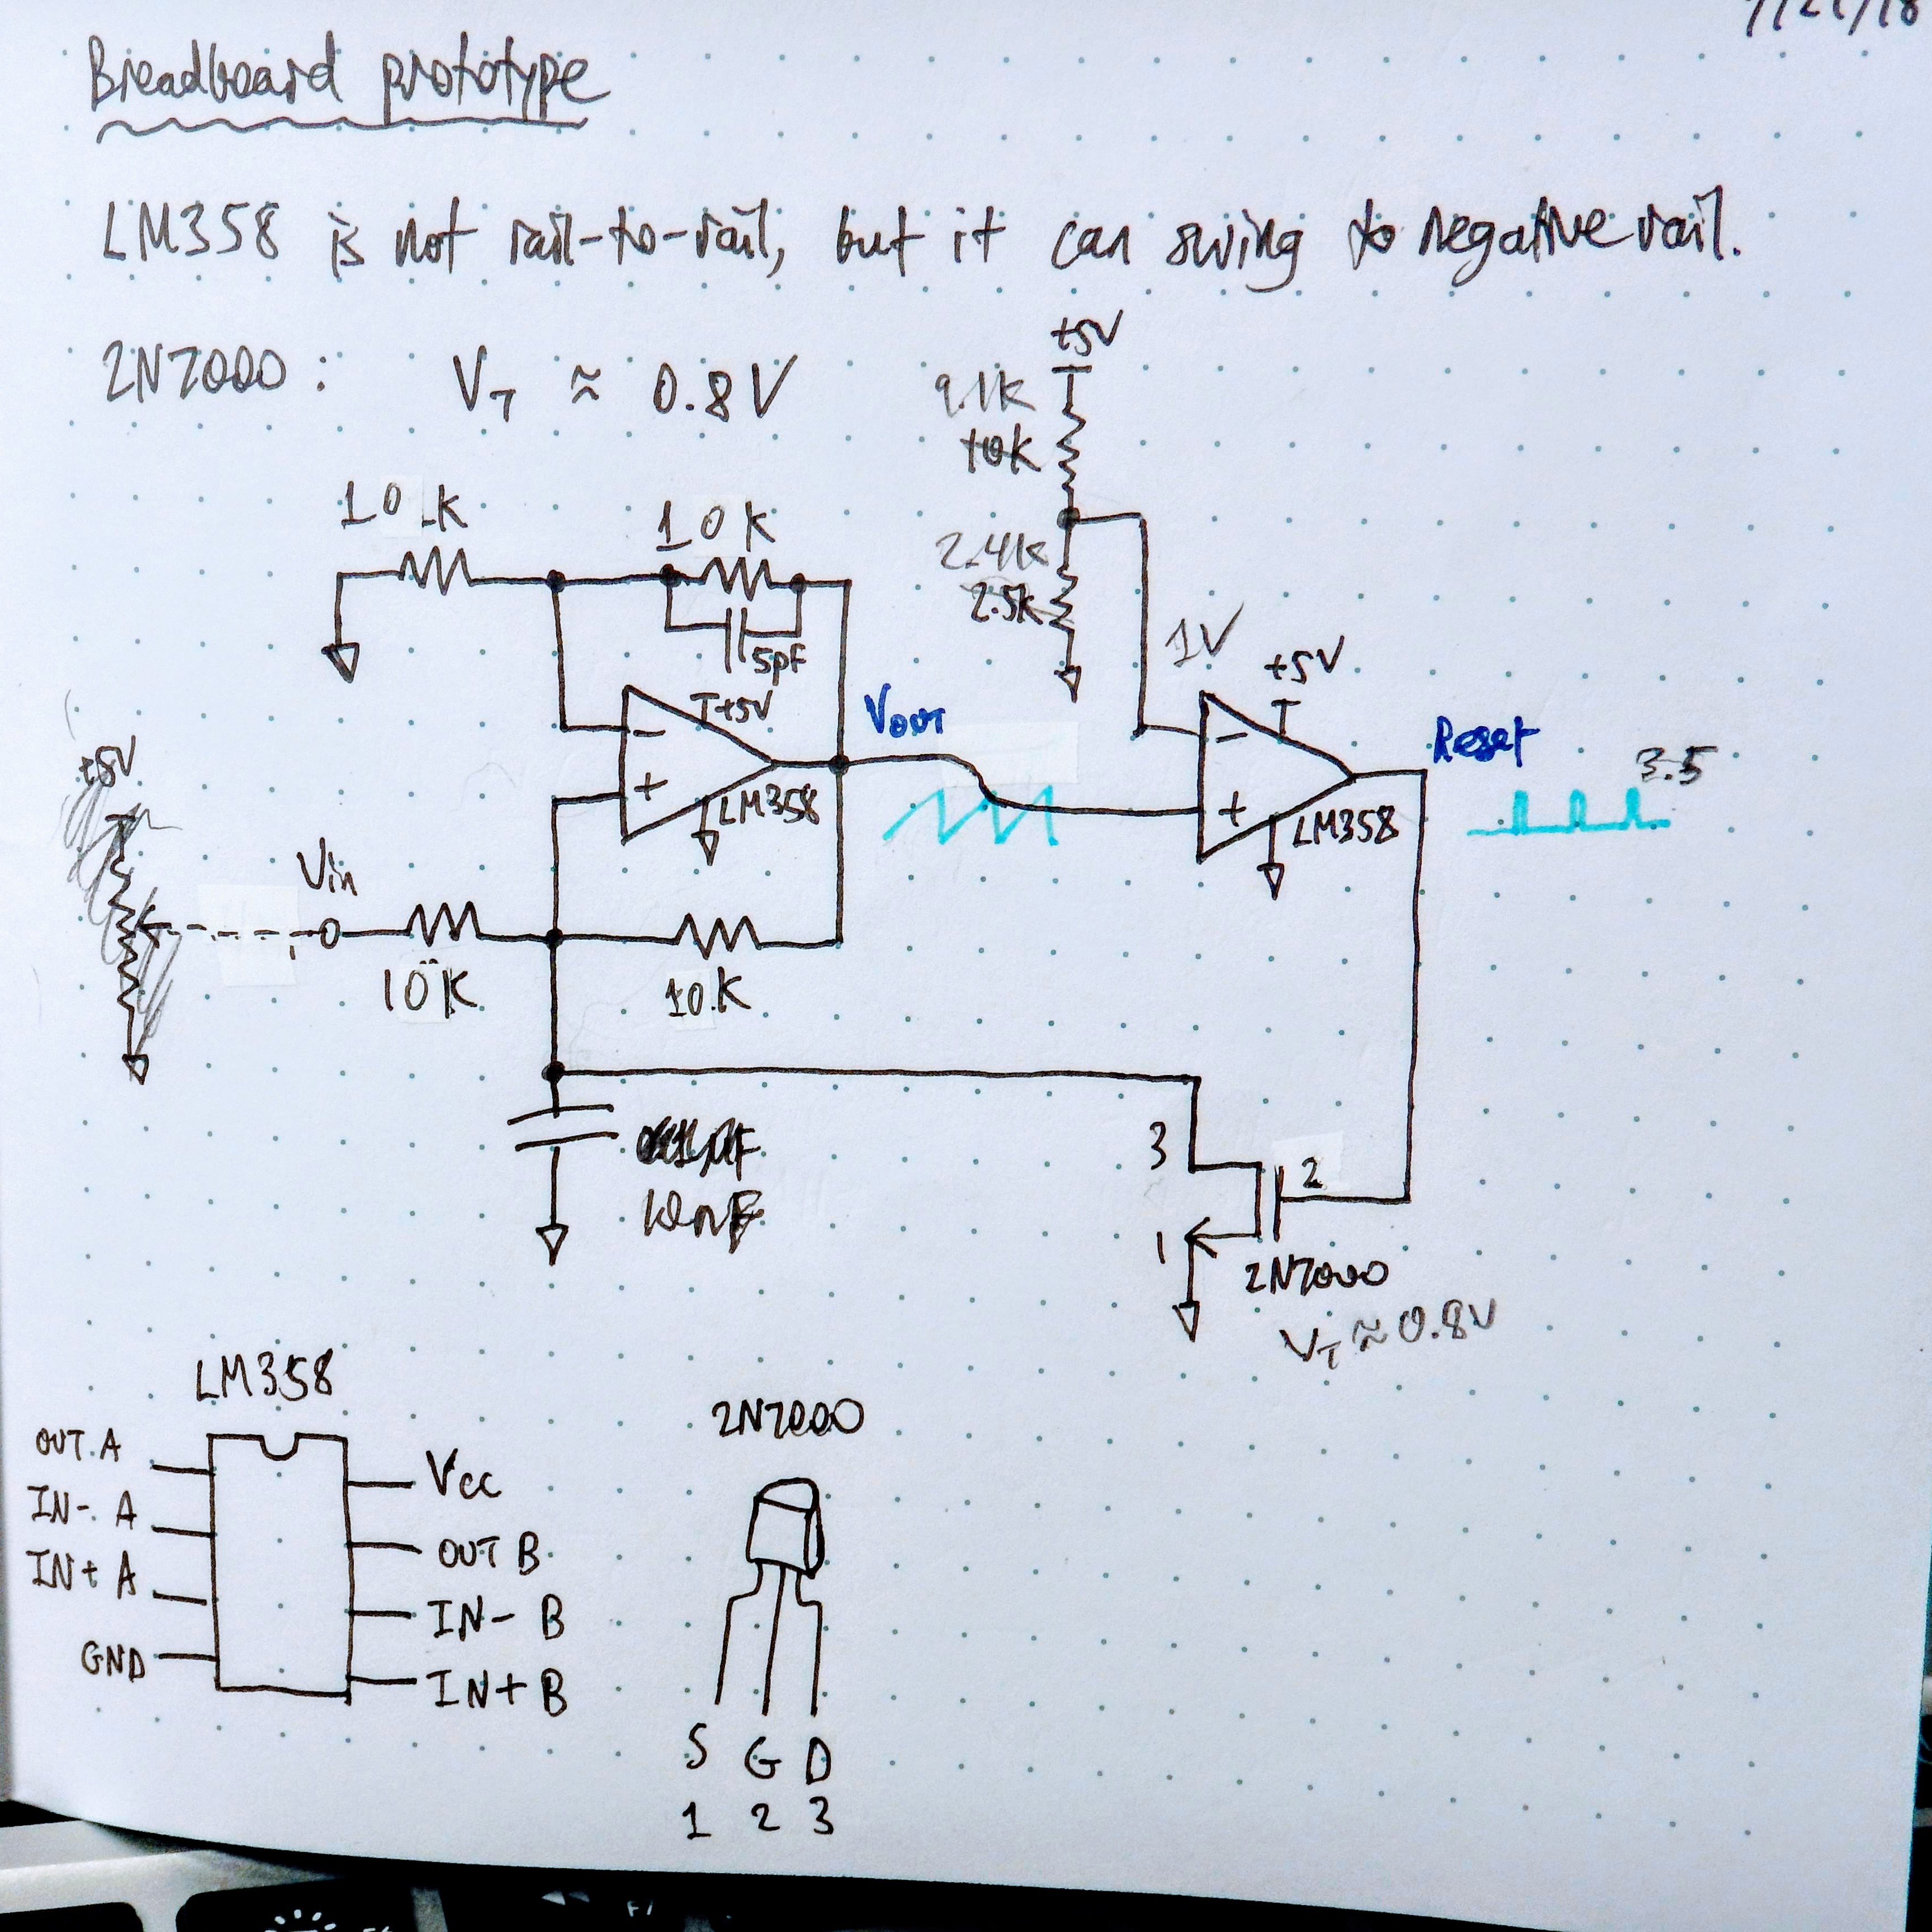 7/21/18
Breadboard prototype
LM358 is not rail-to-rail, but it can swing to negative rail.
2N7000: V_T ≈ 0.8V
+5V
9.1K
10K
10K
10K
2.4K
2.5K
5pF
1V
+5V
+5V
Vout
Reset
3.5
+5V
-
+
LM358
-
+
LM358
Vin
10K
10K
3
2
10nF
1
2N7000
V_T ≈ 0.8V
LM358
OUT A
IN- A
IN+ A
GND
Vcc
OUT B
IN- B
IN+ B
2N7000
S G D
1 2 3
F7